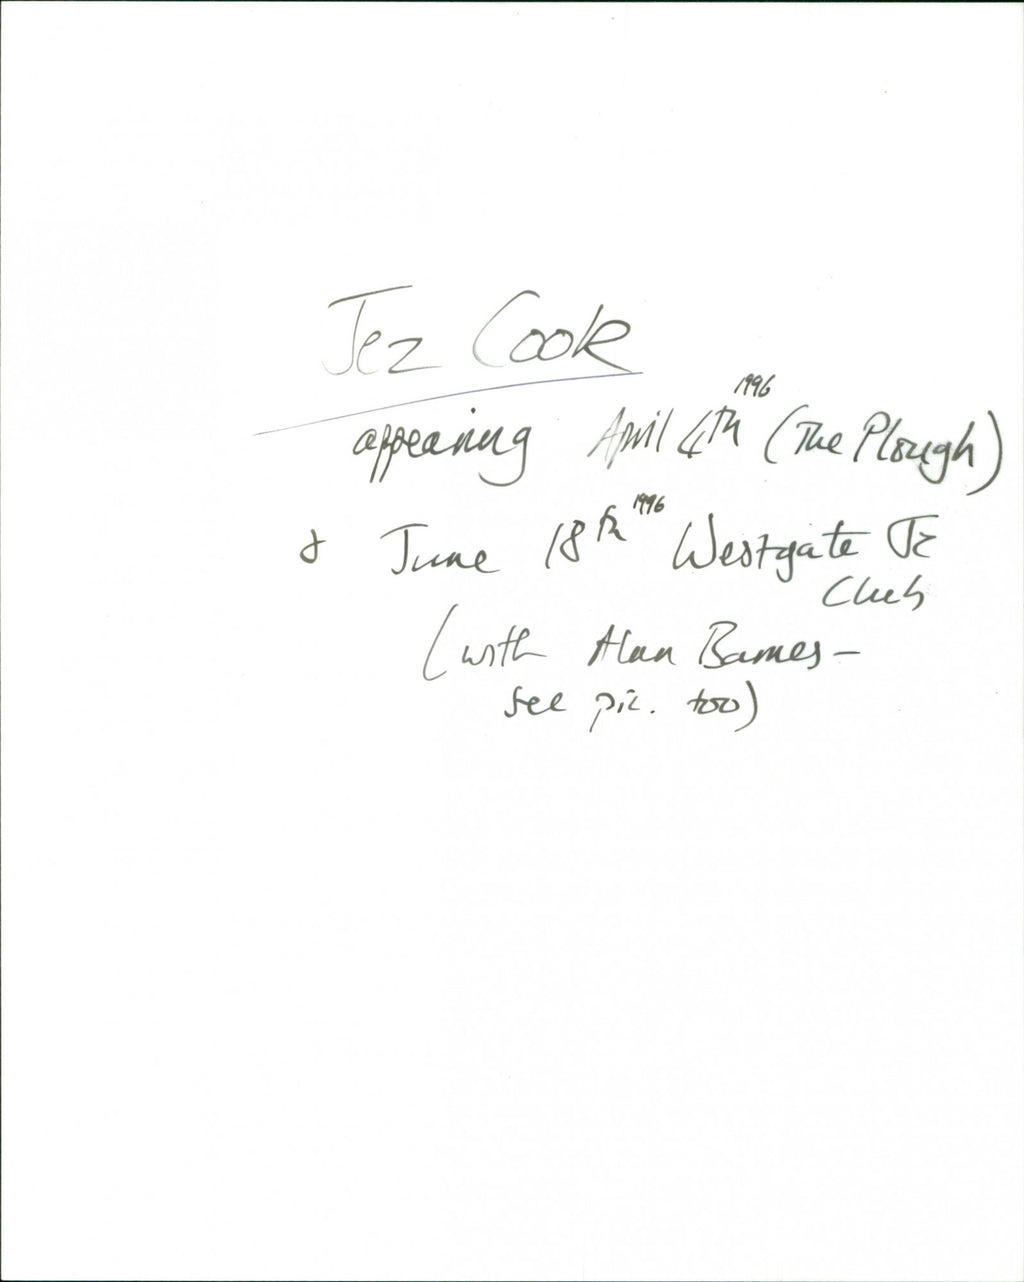 Jez Cook
appearing April 4th 1996 (The Plough)
& June 18th 1996 Westgate Jz
Club
(with Alan Barnes –
see pic. too)